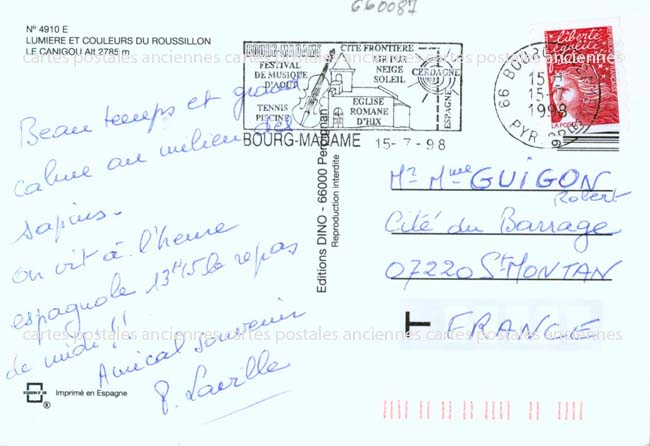 660087
N° 4910 E
LUMIERE ET COULEURS DU ROUSSILLON
LE CANIGOU Alt 2785 m
cartes postales anciennes cartes postales anciennes cartes postales anciennes
BOURG-MADAME
FESTIVAL
DE MUSIQUE
D'AOUT
TENNIS
PISCINE
CITE FRONTIERE
AIR PUR
NEIGE
SOLEIL
EGLISE
ROMANE
D'HIX
CERDAGNE
ESPAGNE
BOURG-MADAME 15-7-98
66 BOURG
15-7
1998
PYR.
liberté
égalité
LA POSTE
Beau temps et grand
calme au milieu des
sapins.
on vit à l'heure
espagnole 13H15 le repas
de midi !!
Amical souvenir
P.
Editions DINO - 66000 Perpignan
Reproduction interdite
Mr Mme GUIGON
Robert
Cité du Barrage
07220 St MONTAN
T FRANCE
cartes postales anciennes cartes postales anciennes cartes postales anciennes
Imprimé en Espagne